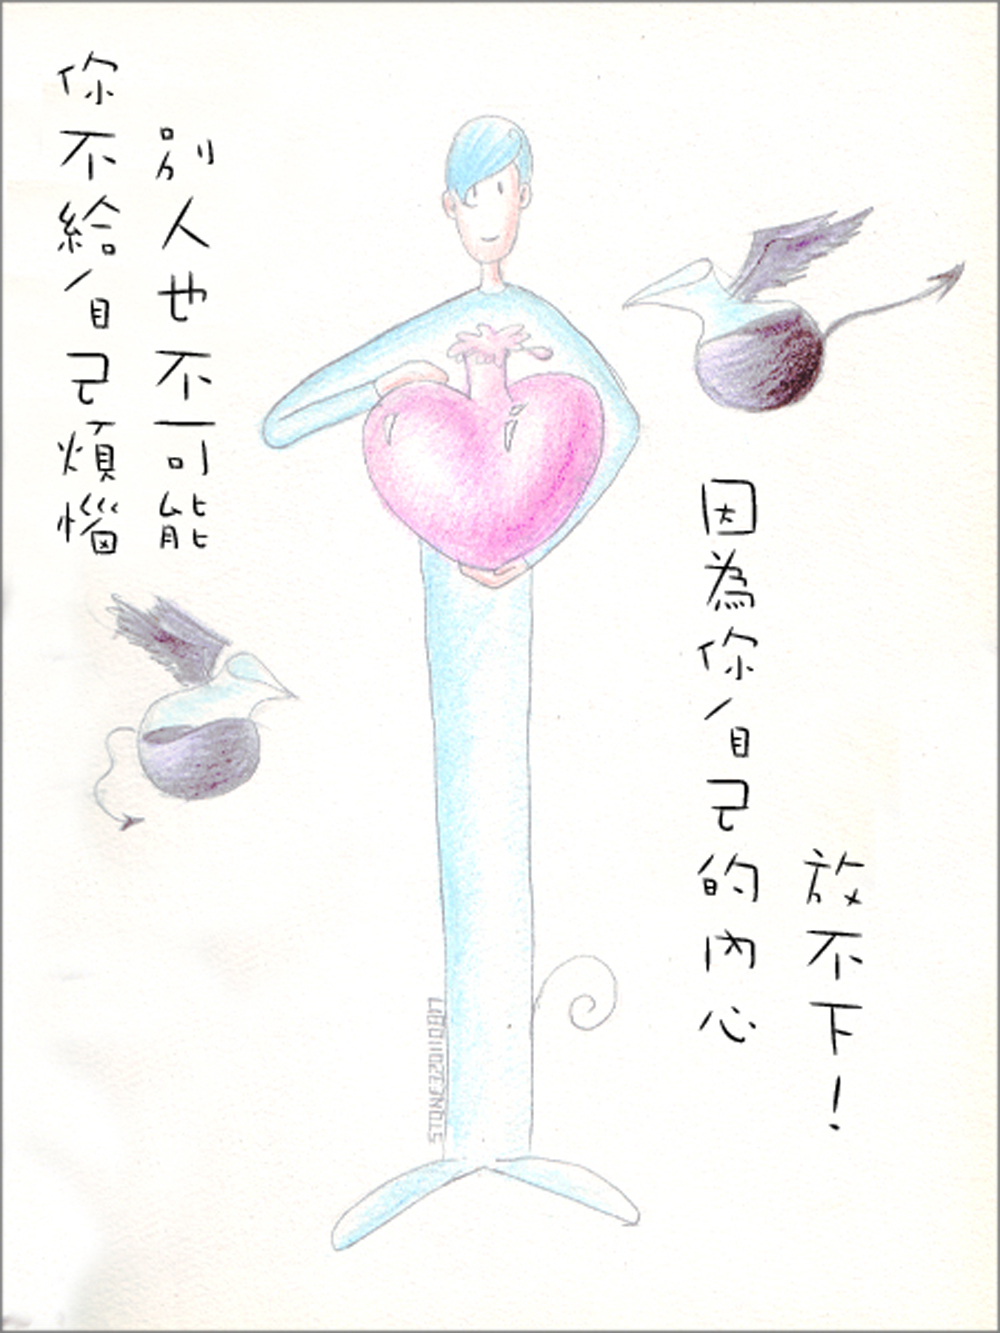 你不給自己煩惱
別人也不可能
因為你自己的內心
放不下！